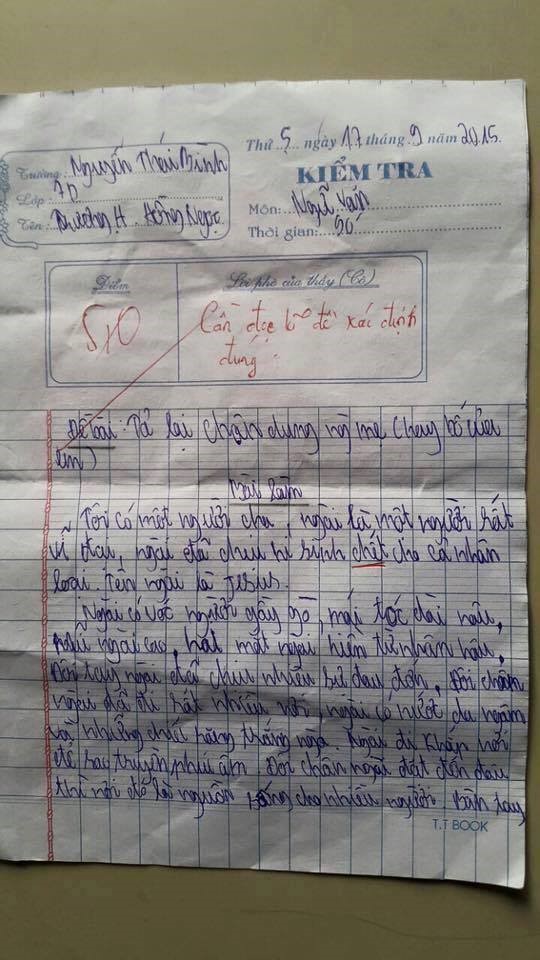 Thứ 5 ngày 17 tháng 9 năm 2015.
Trường: Nguyễn Thái Bình
KIỂM TRA
Lớp: 7D
Môn: Ngữ Văn
Tên: Trương H. Hồng Ngọc
Thời gian: 90'
Điểm
Lời phê của thầy (Cô)
5,0
Cần đọc kĩ đề xác định
đúng.
Đề bài: Tả lại chân dung ng mẹ (hay bố của
em)
Bài làm
Tôi có một người cha, ngài là một người rất
vĩ đại, ngài đã chịu hi sinh chết cho cả nhân
loại. Tên ngài là Jesus.
Ngài có vóc người gầy gò, mái tóc dài nâu,
ngài cao, mặt ngài hiền từ nhân hậu,
Đôi tay ngài đã chịu nhiều sự đau đớn, Đôi chân
ngài đã đi rất nhiều nơi, ngài có nước da ngăm
và những chiếc răng trắng ngà. Ngài đi khắp nơi
để rao truyền phúc âm. Đôi chân ngài đặt đến đâu
thì nơi đó là nguồn sống cho nhiều người. Bàn tay
T.T BOOK